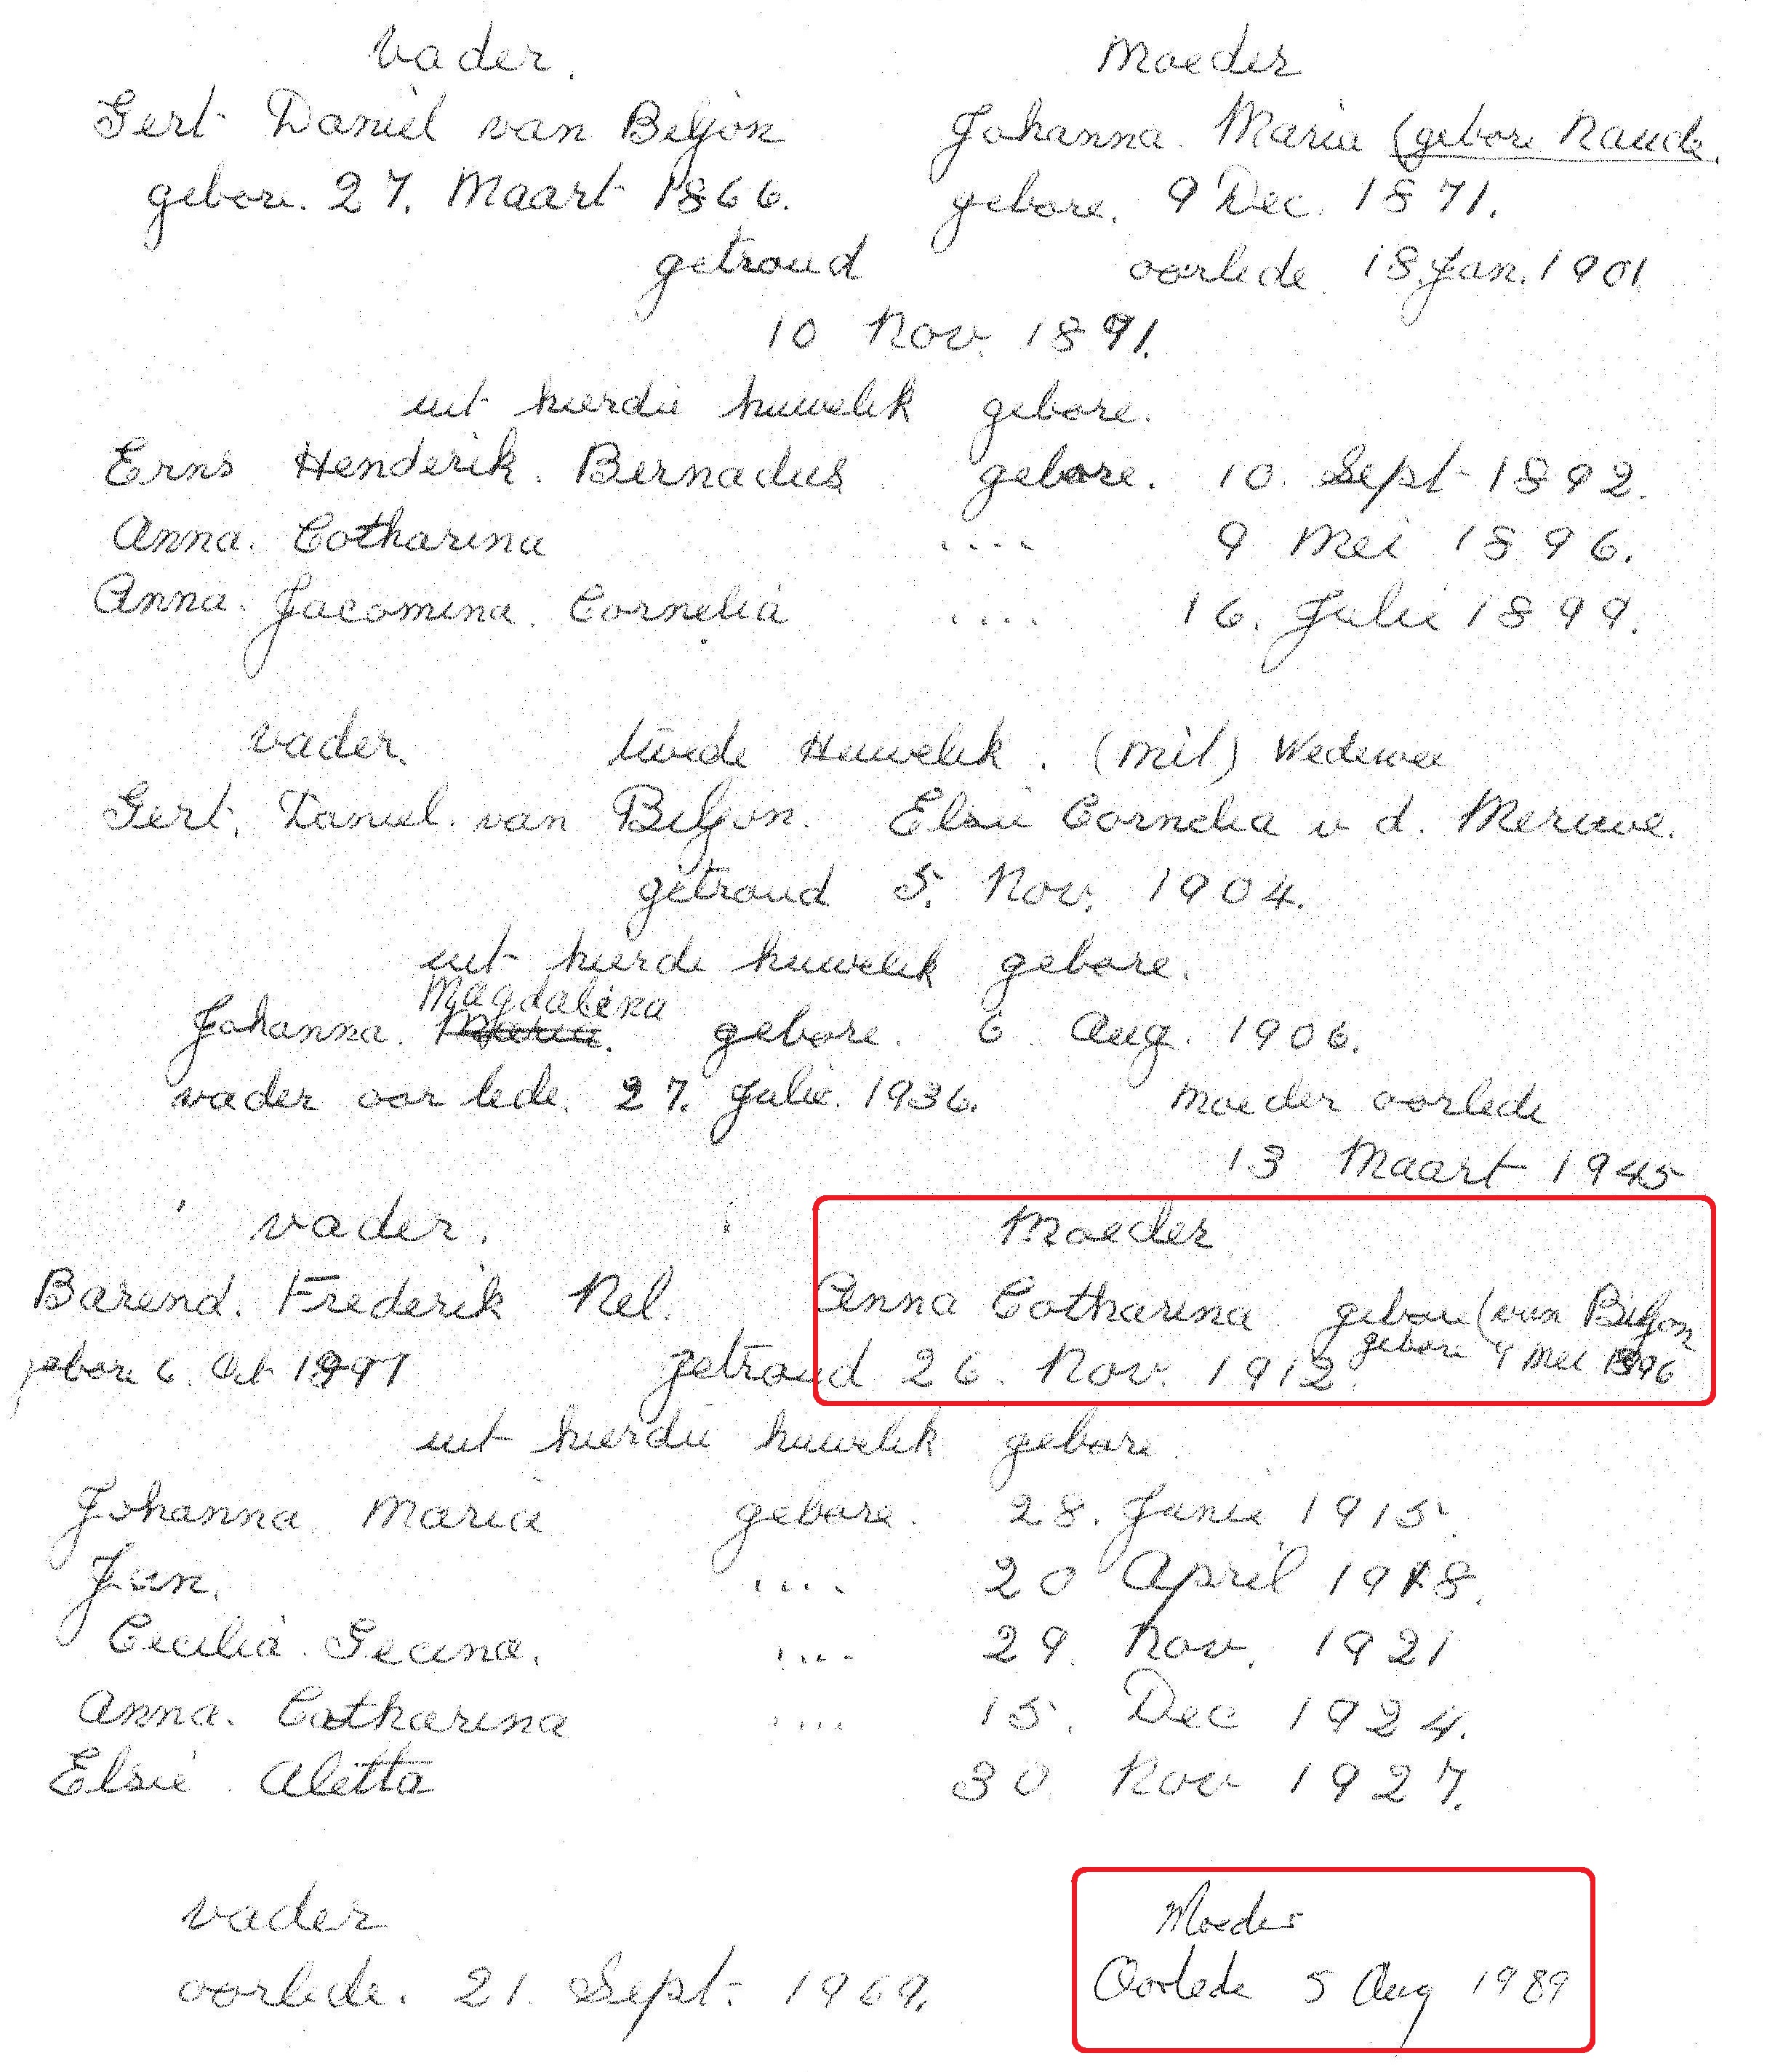 Vader. Moeder
Gert Daniel van Biljon Johanna. Maria (gebore Naude.
gebore. 27. Maart 1866. gebore. 9 Dec. 1871.
getroud oorlede. 18. Jan. 1901
10 Nov. 1891.
uit hierdie huwelik gebore.
Erns Henderik. Bernadus gebore. 10. Sept 1892.
Anna. Catharina .... 9 Mei 1896.
Anna. Jacomina. Cornelia .... 16. Julie 1899.
vader. twede Huwelik. (mit) Wedewee
Gert. Daniel. van Biljon. Elsie Cornelia v d. Merwwe.
getroud 5. Nov. 1904.
uit hierde huwelik gebore.
Magdalena
Johanna. Maria. gebore. 6 Aug. 1906.
vader oor lede. 27. Julie. 1936. moeder oorlede
13 Maart 1945
vader. Moeder
Barend. Frederik Nel. Anna Catharina gebore (van Biljon
gebore 6. Oct 1891 getroud 26. Nov. 1912. gebore 9 Mei 1896
uit hierdie huwelik gebore
Johanna Maria gebore. 28. Junie 1915.
Jan. .... 20 April 1918.
Cecilia. Gecina. .... 29. Nov. 1921
Anna. Catharina .... 15. Dec 1924.
Elsie. Aletta 30 Nov 1927.
vader Moeder
oorlede. 21. Sept. 1969. Oorlede 5 Aug 1989